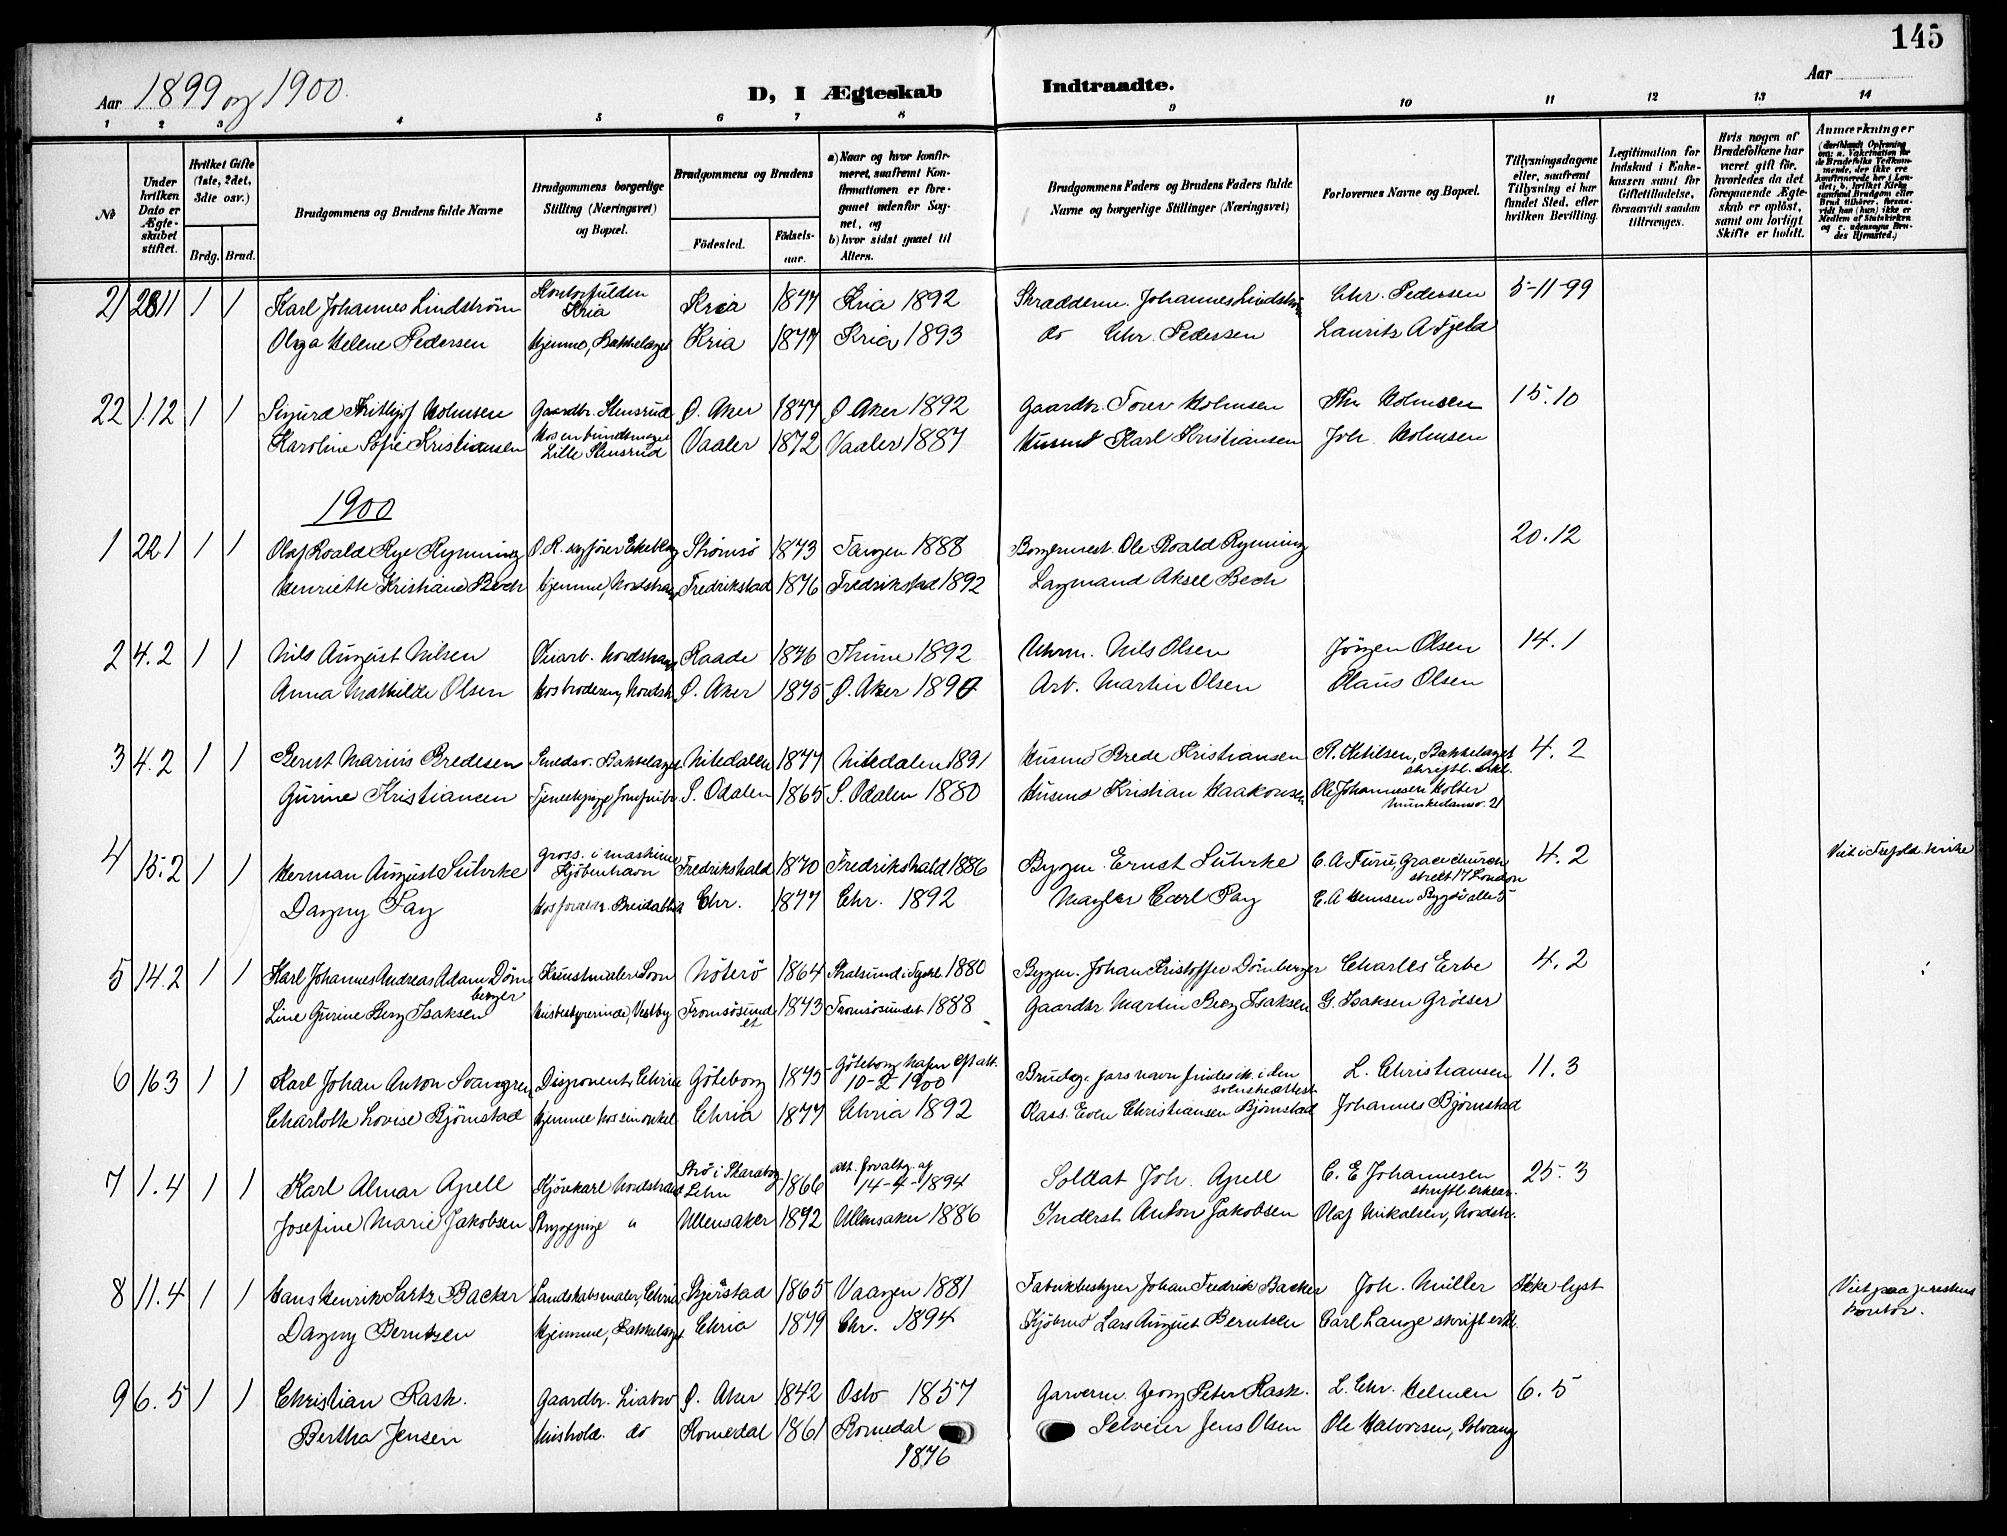 145
Aar 1899 og 1900.
D, I Ægteskab Indtraadte.
Aar
1 2 3 4 5 6 7 8 9 10 11 12 13 14
No
Under hvilken Dato er Ægteskabet stiftet.
Hvilket Gifte (1ste, 2det, 3die osv.)
Brdg. Brud.
Brudgommens og Brudens fulde Navne
Brudgommens borgerlige Stilling (Næringsvei) og Bopæl.
Brudgommens og Brudens
Födested.
Födsels-aar.
a) Naar og hvor konfirmeret, saafremt Konfirmationen er foregaaet udenfor Sognet, og
b) hvor sidst gaaet til Alters.
Brudgommens Faders og Brudens Faders fulde Navne og borgerlige Stillinger (Næringsvei)
Forlovernes Navne og Bopæl.
Tillysningsdagene eller, saafremt Tillysning ei har fundet Sted, efter hvilken Bevilling.
Legitimation for Indskud i Enkekassen samt for Giftetilladelse, forsaavidt saadan tiltrænges.
Hvis nogen af Brudefolkene har været gift för, hvorledes da det foregaaende Ægteskab er oplöst, samt om lovligt Skifte er holdt.
Anmærkninger
21 28 11 1 1 Karl Johannes Lindström Kontorfulden Kria Kria 1877 Kria 1892 Skrædderm. Johannes Lindström Chr. Pedersen 5-11-99
Olga Helene Pedersen Hjemme, Bækkelaget Kria 1877 Kria 1893 do Chr. Pedersen Laurits A Fjeld
22 1.12 1 1 Sigurd Frithjof Holmsen Gaardbr. Stensrud Ø. Aker 1877 Ø Aker 1892 Gaardbr. Torer Holmsen Thv Holmsen 15.10
Karoline Sofie Kristiansen Lille Stensrud Vaaler 1872 Vaaler 1887 Husmd Karl Kristiansen Joh. Holmsen
1900
1 22 1 1 1 Olaf Roald Rye Rynning O.R. sagfører Ekeberg Strømsö 1873 Tangen 1888 Borgermest. Ole Roald Rynning 20.12
Henriette Kristiane Bech Hjemme, Nordstrand Fredrikstad 1876 Fredrikstad 1892 Lagmand Aksel Bech
2 4.2 1 1 Nils August Nilsen Nordstrand Raade 1876 Thune 1892 Uhrm. Nils Olsen Jörgen Olsen 14.1
Anna Mathilde Olsen Hos broderen, Nordstr. Ø. Aker 1875 Ø. Aker 1890 Arb. Martin Olsen Olaus Olsen
3 4.2 1 1 Bernt Marius Bredesen Bækkelaget Nitedalen 1877 Nitedalen 1891 Husmd Brede Kristiansen R. Ketilsen, Bækkelaget skriftl. erkl. 4.2
Gurine Kristiansen Tjenestepige Jomfrubr. S. Odalen 1865 S. Odalen 1880 Husmd Kristian Haakonsen Ole Johannesen Holter Munkedamsv. 21
4 15.2 1 1 Herman August Suhrke gross. i maskiner Kjöbenhavn Fredrikshald 1870 Fredrikshald 1886 Bygm. Ernst Suhrke C. A Furu, Gracechurch street 17 London 4.2 Viet i Trefold. kirke
Dagny Fay Hos forældr. Breidablik Chr. 1877 Chr. 1892 Mægler Carl Fay C. A Hemsen Bygdö allé 5
5 14.2 1 1 Karl Johannes Andreas Adam Dörnberger Kunstmaler Soon Nöterö 1864 Stralsund i Tyskl. 1880 Bygm. Johan Kristoffer Dörnberger Charles Erbe 4.2
Line Gurine Berg Isaksen Husbestyrerinde, Vestby Tromsösundet 1873 Tromsösundet 1888 Gaardbr. Martin Berg Isaksen G. Isaksen Gröeser
6 16 3 1 1 Karl Johan Anton Svangren Disponent, Chria Göteborg 1875 Göteborg Hafm eft att. 10-2 1900 Brudg. fars navn findes ik. i den svenske attest L. Christiansen 11.3
Charlotte Lovise Björnstad Hjemme hos sin onkel Chria 1877 Chria 1892 Even Christiansen Björnstad Johannes Björnstad
7 1.4 1 1 Karl Almar Apell Kjörekarl Nordstrand Strö i Skaraborg Lehn 1866 att. fra af 14-4-1894 Soldat Joh. Apell C. E Johannesen skriftl erklær. 25.3
Josefine Marie Jakobsen Strygepige " Ullensaker 1872 Ullensaker 1886 Inderst Anton Jakobsen Olaf Nikolsen, Nordstr.
8 11.4 1 1 Hans Henrik Sartz Backer Landskabsmaler, Chria Skjerstad 1865 Vaagen 1881 Fabrikbestyrer Johan Fredrik Backer Joh. Müller Ikke lyst Viet paa prestens kontor.
Dagny Berntsen Hjemme, Bækkelaget Chria 1879 Chr. 1894 Kjöbmd Lars August Berntsen Carl Lange skriftl erkl.
9 6.5 1 1 Christian Rask. Gaardbr. Liabro Ø. Aker 1842 Oslo 1857 Garverm. Georg Peter Rask. L. Chr. Helmen 6.5
Bertha Jensen Hushold. do Romedal 1861 Romedal 1876 Selveier Jens Olsen Ole Halvorsen, Solvang